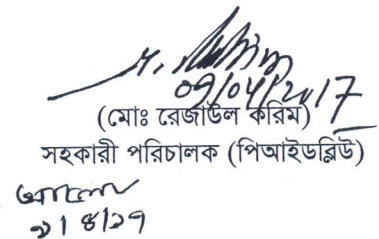 09/04/2017
(মোঃ রেজাউল করিম)
সহকারী পরিচালক (পিআইডব্লিউ)
৯।৪।১৭